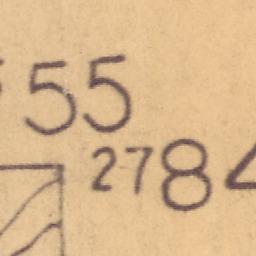 55
2784